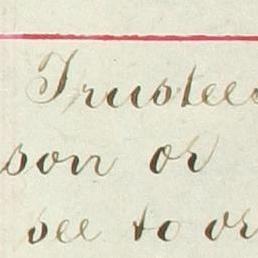 Trustees
son or
see to or